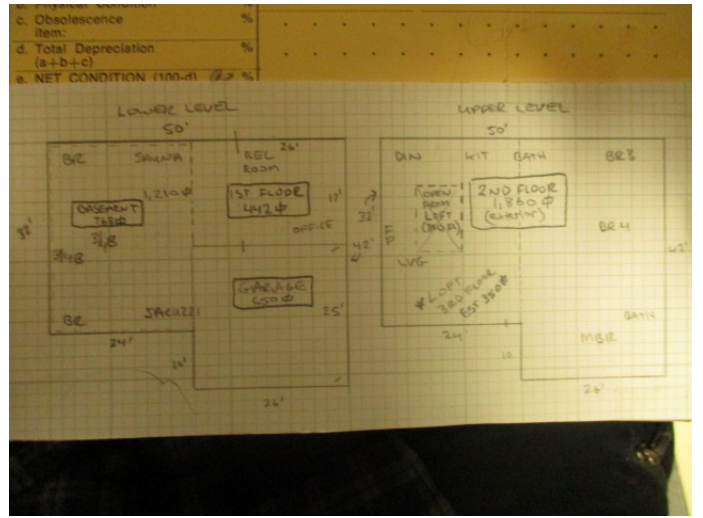 b. Physical Condition %
c. Obsolescence %
item:
d. Total Depreciation %
(a+b+c)
e. NET CONDITION (100-d) %
LOWER LEVEL
50'
26'
BR SAUNA REC
ROOM
1,210⌀
BASEMENT
768⌀
1ST FLOOR
442⌀
17'
OFFICE
32'
3/4B
3/4B
GARAGE
650⌀
25'
BR JACUZZI
24'
10'
26'
UPPER LEVEL
50'
DIN KIT BATH BR3
OPEN
FROM
LOFT
2ND FLOOR
1,860⌀
(exterior)
32'
42'
FP
BR4
42'
LVG
* LOFT
3RD FLOOR
EST 350⌀
24'
10
BATH
MBR
26'